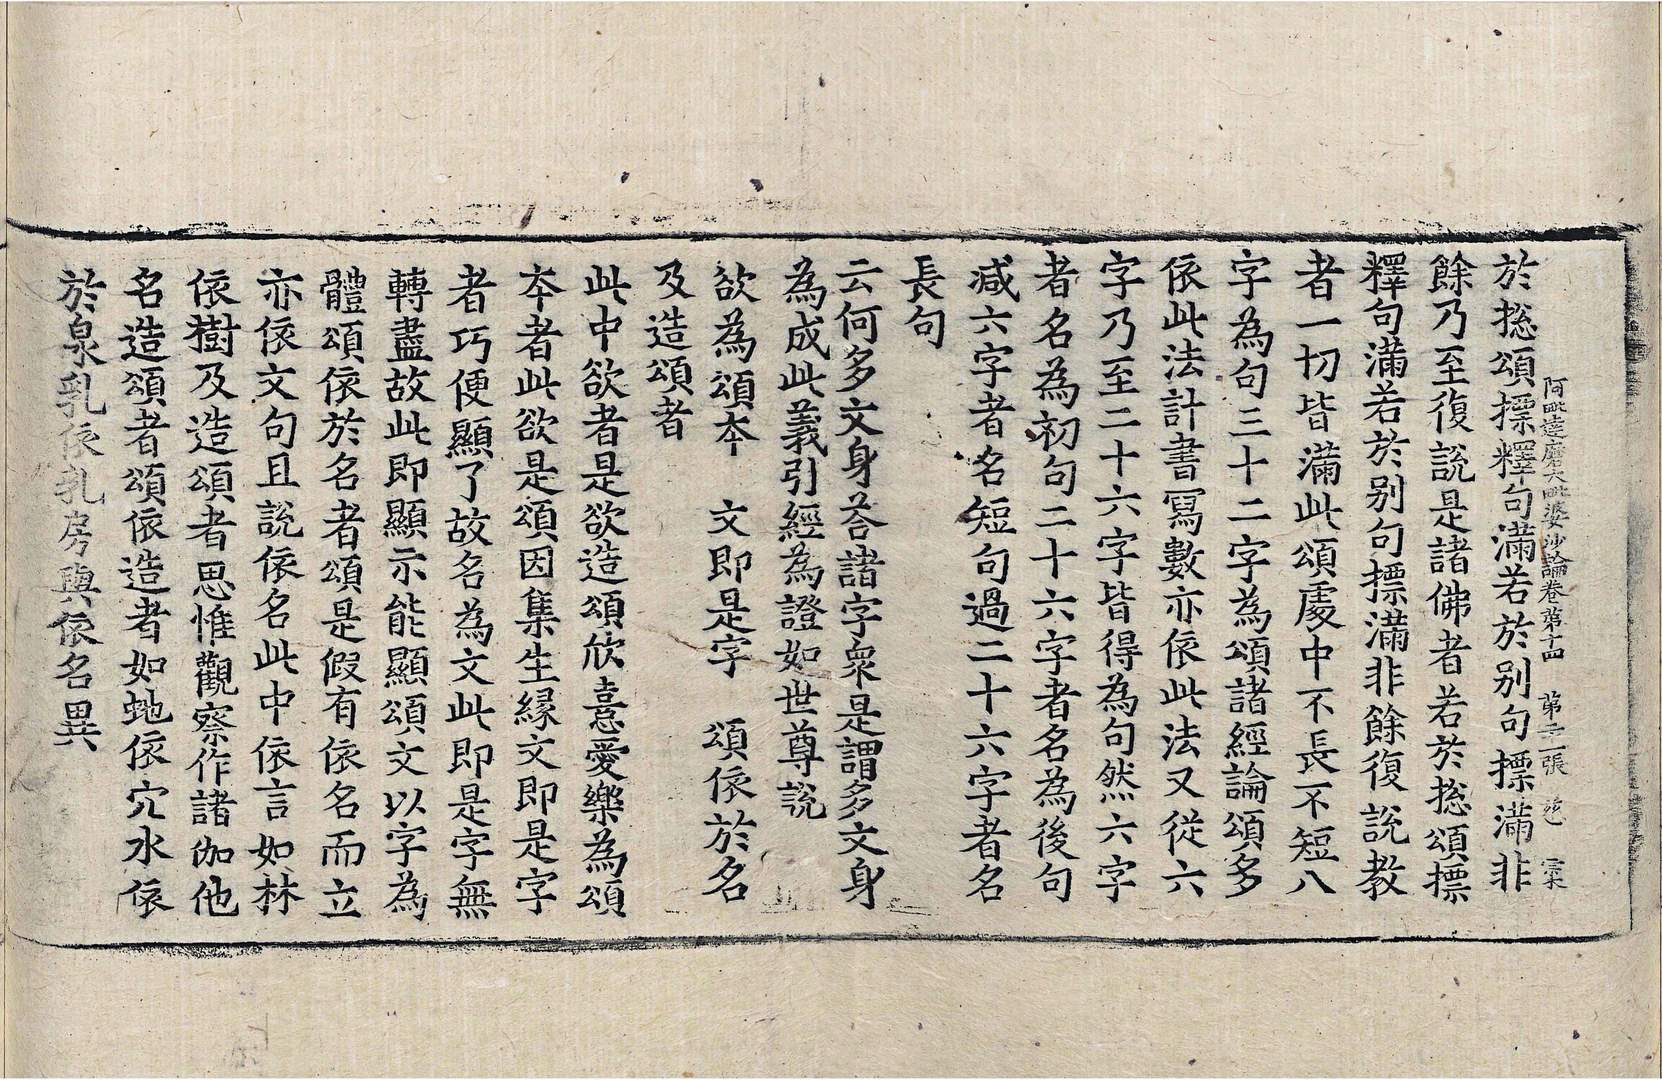 阿毗達磨大毗婆沙論卷第十四 第二張
於揔頌摽釋句滿若於别句摽滿非
餘乃至復說是諸佛者若於揔頌摽
釋句滿若於别句摽滿非餘復說教
者一切皆滿此頌處中不長不短八
字為句三十二字為頌諸經論頌多
依此法計書寫數亦依此法又從六
字乃至二十六字皆得為句然六字
者名為初句二十六字者名為後句
减六字者名短句過二十六字者名
長句
云何多文身荅諸字衆是謂多文身
為成此義引經為證如世尊說
欲為頌夲 文即是字 頌依於名
及造頌者
此中欲者是欲造頌欣憙愛樂為頌
夲者此欲是頌因集生緣文即是字
者巧便顯了故名為文此即是字無
轉盡故此即顯示能顯頌文以字為
體頌依於名者頌是假有依名而立
亦依文句且說依名此中依言如林
依樹及造頌者思惟觀察作諸伽他
名造頌者頌依造者如虵依穴水依
於泉乳依乳房與依名異